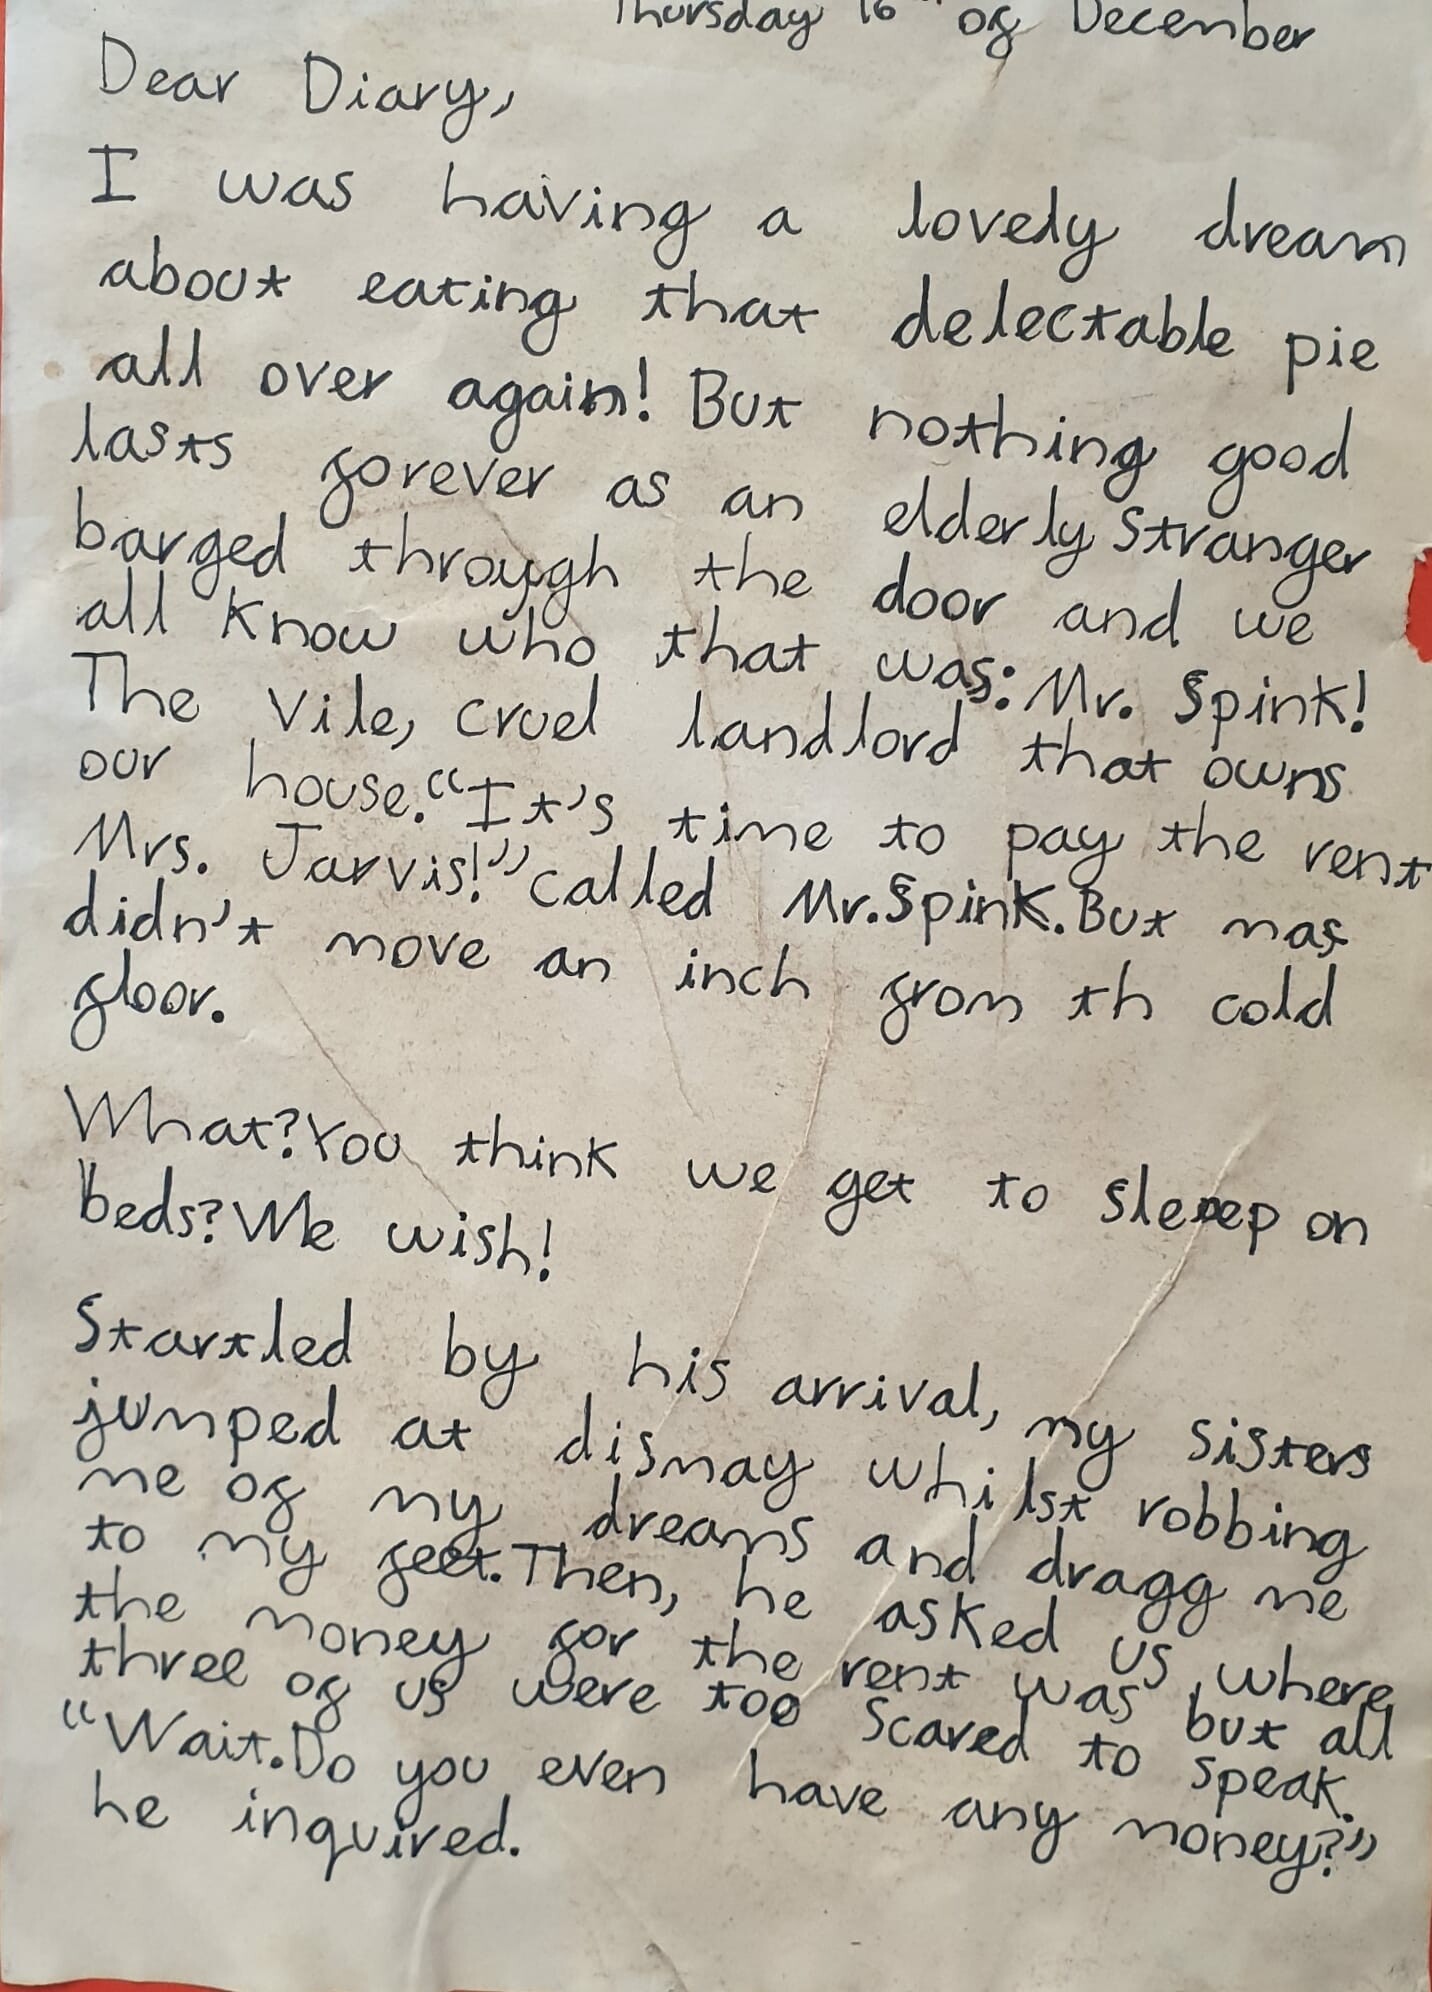 Thursday 16th of December
Dear Diary,
I was having a lovely dream
about eating that delectable pie
all over again! But nothing good
lasts forever as an elderly stranger
barged through the door and we
all know who that was: Mr. Spink!
The vile, cruel landlord that owns
our house. "It's time to pay the rent
Mrs. Jarvis!" called Mr. Spink. But mas
didn't move an inch from th cold
floor.
What? You think we get to sleeep on
beds? We wish!
Startled by his arrival, my sisters
jumped at dismay whilst robbing
me of my dreams and dragg me
to my feet. Then, he asked us where
the money for the rent was, but all
three of us were too scared to speak.
"Wait. Do you even have any money?"
he inquired.